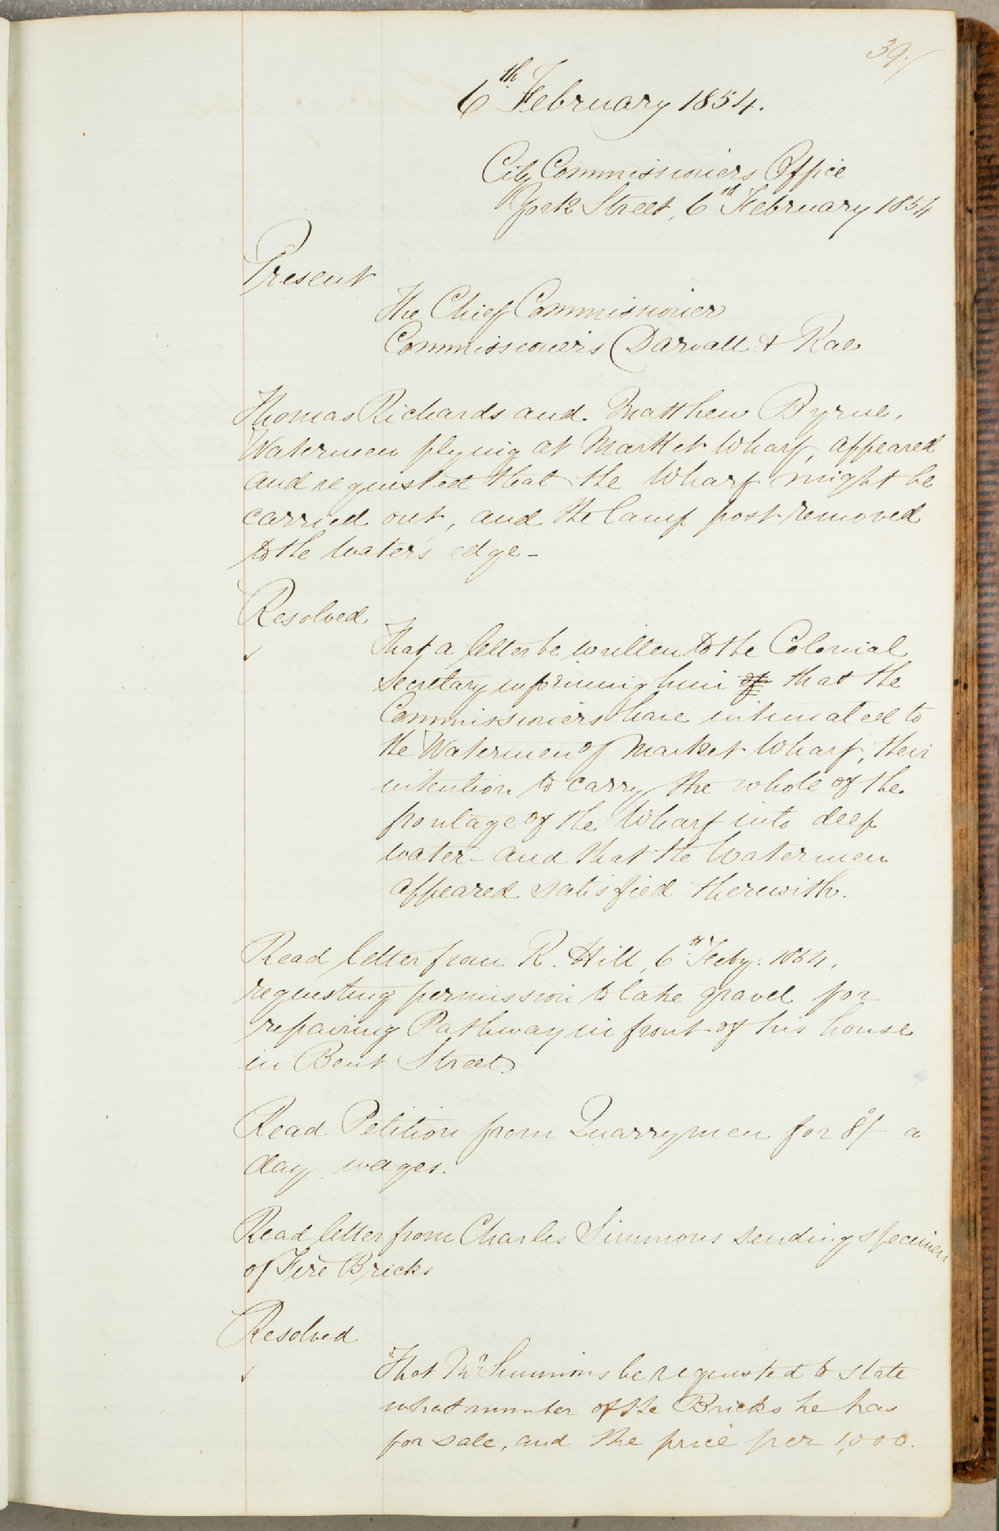 39./
6th February 1854.
City Commissioners Office
York Street, 6th February 1854
Present
The Chief Commissioner
Commissioners Darvall & Rae
Thomas Richards and. Matthew Byrne,
Watermen plying at Market Wharf, appeared
and requested that the Wharf might be
carried out, and the lamp post removed
to the water's edge -
Resolved
That a letter be written to the Colonial
Secretary informing him of that the
Commissioners have intimated to
the Watermen of Market Wharf, their
intention to carry the whole of the
frontage of the Wharf into deep
water - and that the Watermen
appeared satisfied therewith.
Read letter from R. Hill, 6th Feby: 1854,
requesting permission to take gravel for
repairing Pathway in front of his house
in Bent Street
Read Petition from Quarrymen for 8/- a
day wages.
Read letter from Charles Simmons sending specimen
of Fire Bricks
Resolved
That Mr Simmons be requested to state
what number of the Bricks he has
for sale, and the price per 1,000.